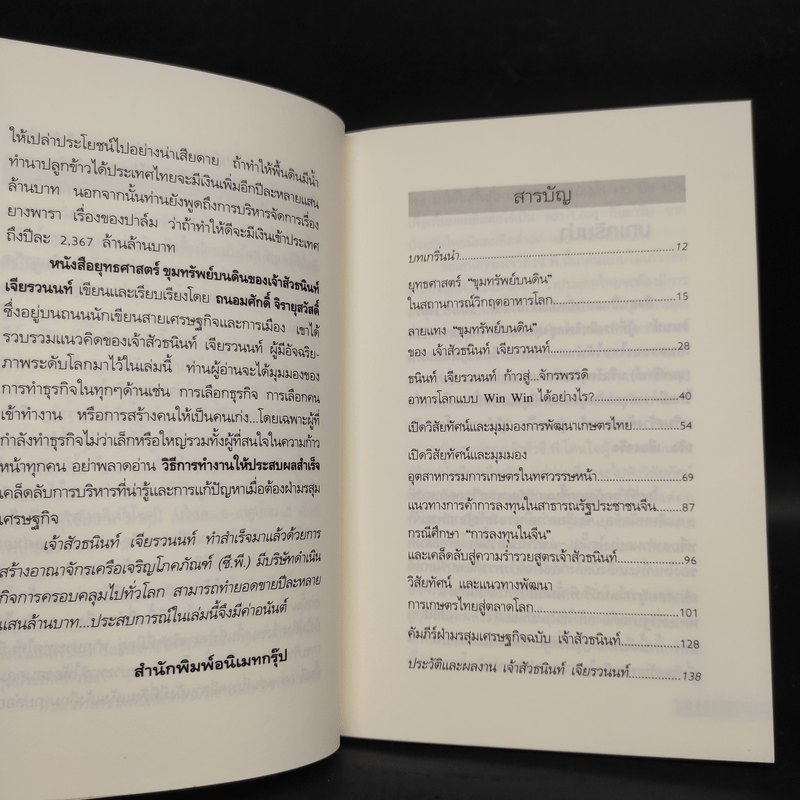 ให้เปล่าประโยชน์ไปอย่างน่าเสียดาย ถ้าทำให้พื้นดินมีน้ำ
ทำนาปลูกข้าวได้ประเทศไทยจะมีเงินเพิ่มอีกปีละหลายแสน
ล้านบาท นอกจากนั้นท่านยังพูดถึงการบริหารจัดการเรื่อง
ยางพารา เรื่องของปาล์ม ว่าถ้าทำให้ดีจะมีเงินเข้าประเทศ
ถึงปีละ 2,367 ล้านล้านบาท
หนังสือยุทธศาสตร์ ขุมทรัพย์บนดินของเจ้าสัวธนินท์
เจียรวนนท์ เขียนและเรียบเรียงโดย ถนอมศักดิ์ จิรายุสวัสดิ์
ซึ่งอยู่บนถนนนักเขียนสายเศรษฐกิจและการเมือง เขาได้
รวบรวมแนวคิดของเจ้าสัวธนินท์ เจียรวนนท์ ผู้มีอัจฉริย-
ภาพระดับโลกมาไว้ในเล่มนี้ ท่านผู้อ่านจะได้มุมมองของ
การทำธุรกิจในทุกๆด้านเช่น การเลือกธุรกิจ การเลือกคน
เข้าทำงาน หรือการสร้างคนให้เป็นคนเก่ง...โดยเฉพาะผู้ที่
กำลังทำธุรกิจไม่ว่าเล็กหรือใหญ่รวมทั้งผู้ที่สนใจในความก้าว
หน้าทุกคน อย่าพลาดอ่าน วิธีการทำงานให้ประสบผลสำเร็จ
เคล็ดลับการบริหารที่น่ารู้และการแก้ปัญหาเมื่อต้องฝ่ามรสุม
เศรษฐกิจ
เจ้าสัวธนินท์ เจียรวนนท์ ทำสำเร็จมาแล้วด้วยการ
สร้างอาณาจักรเครือเจริญโภคภัณฑ์ (ซี.พี.) มีบริษัทดำเนิน
กิจการครอบคลุมไปทั่วโลก สามารถทำยอดขายปีละหลาย
แสนล้านบาท...ประสบการณ์ในเล่มนี้จึงมีค่าอนันต์
สำนักพิมพ์อนิเมทกรุ๊ป
สารบัญ
บทเกริ่นนำ........................................12
ยุทธศาสตร์ "ขุมทรัพย์บนดิน"
ในสถานการณ์วิกฤตอาหารโลก........................15
ลายแทง "ขุมทรัพย์บนดิน"
ของ เจ้าสัวธนินท์ เจียรวนนท์........................28
ธนินท์ เจียรวนนท์ ก้าวสู่...จักรพรรดิ
อาหารโลกแบบ Win Win ได้อย่างไร?................40
เปิดวิสัยทัศน์และมุมมองการพัฒนาเกษตรไทย..........54
เปิดวิสัยทัศน์และมุมมอง
อุตสาหกรรมการเกษตรในทศวรรษหน้า................69
แนวทางการค้าการลงทุนในสาธารณรัฐประชาชนจีน......87
กรณีศึกษา "การลงทุนในจีน"
และเคล็ดลับสู่ความร่ำรวยสูตรเจ้าสัวธนินท์............96
วิสัยทัศน์ และแนวทางพัฒนา
การเกษตรไทยสู่ตลาดโลก............................101
คัมภีร์ฝ่ามรสุมเศรษฐกิจฉบับ เจ้าสัวธนินท์............128
ประวัติและผลงาน เจ้าสัวธนินท์ เจียรวนนท์............138